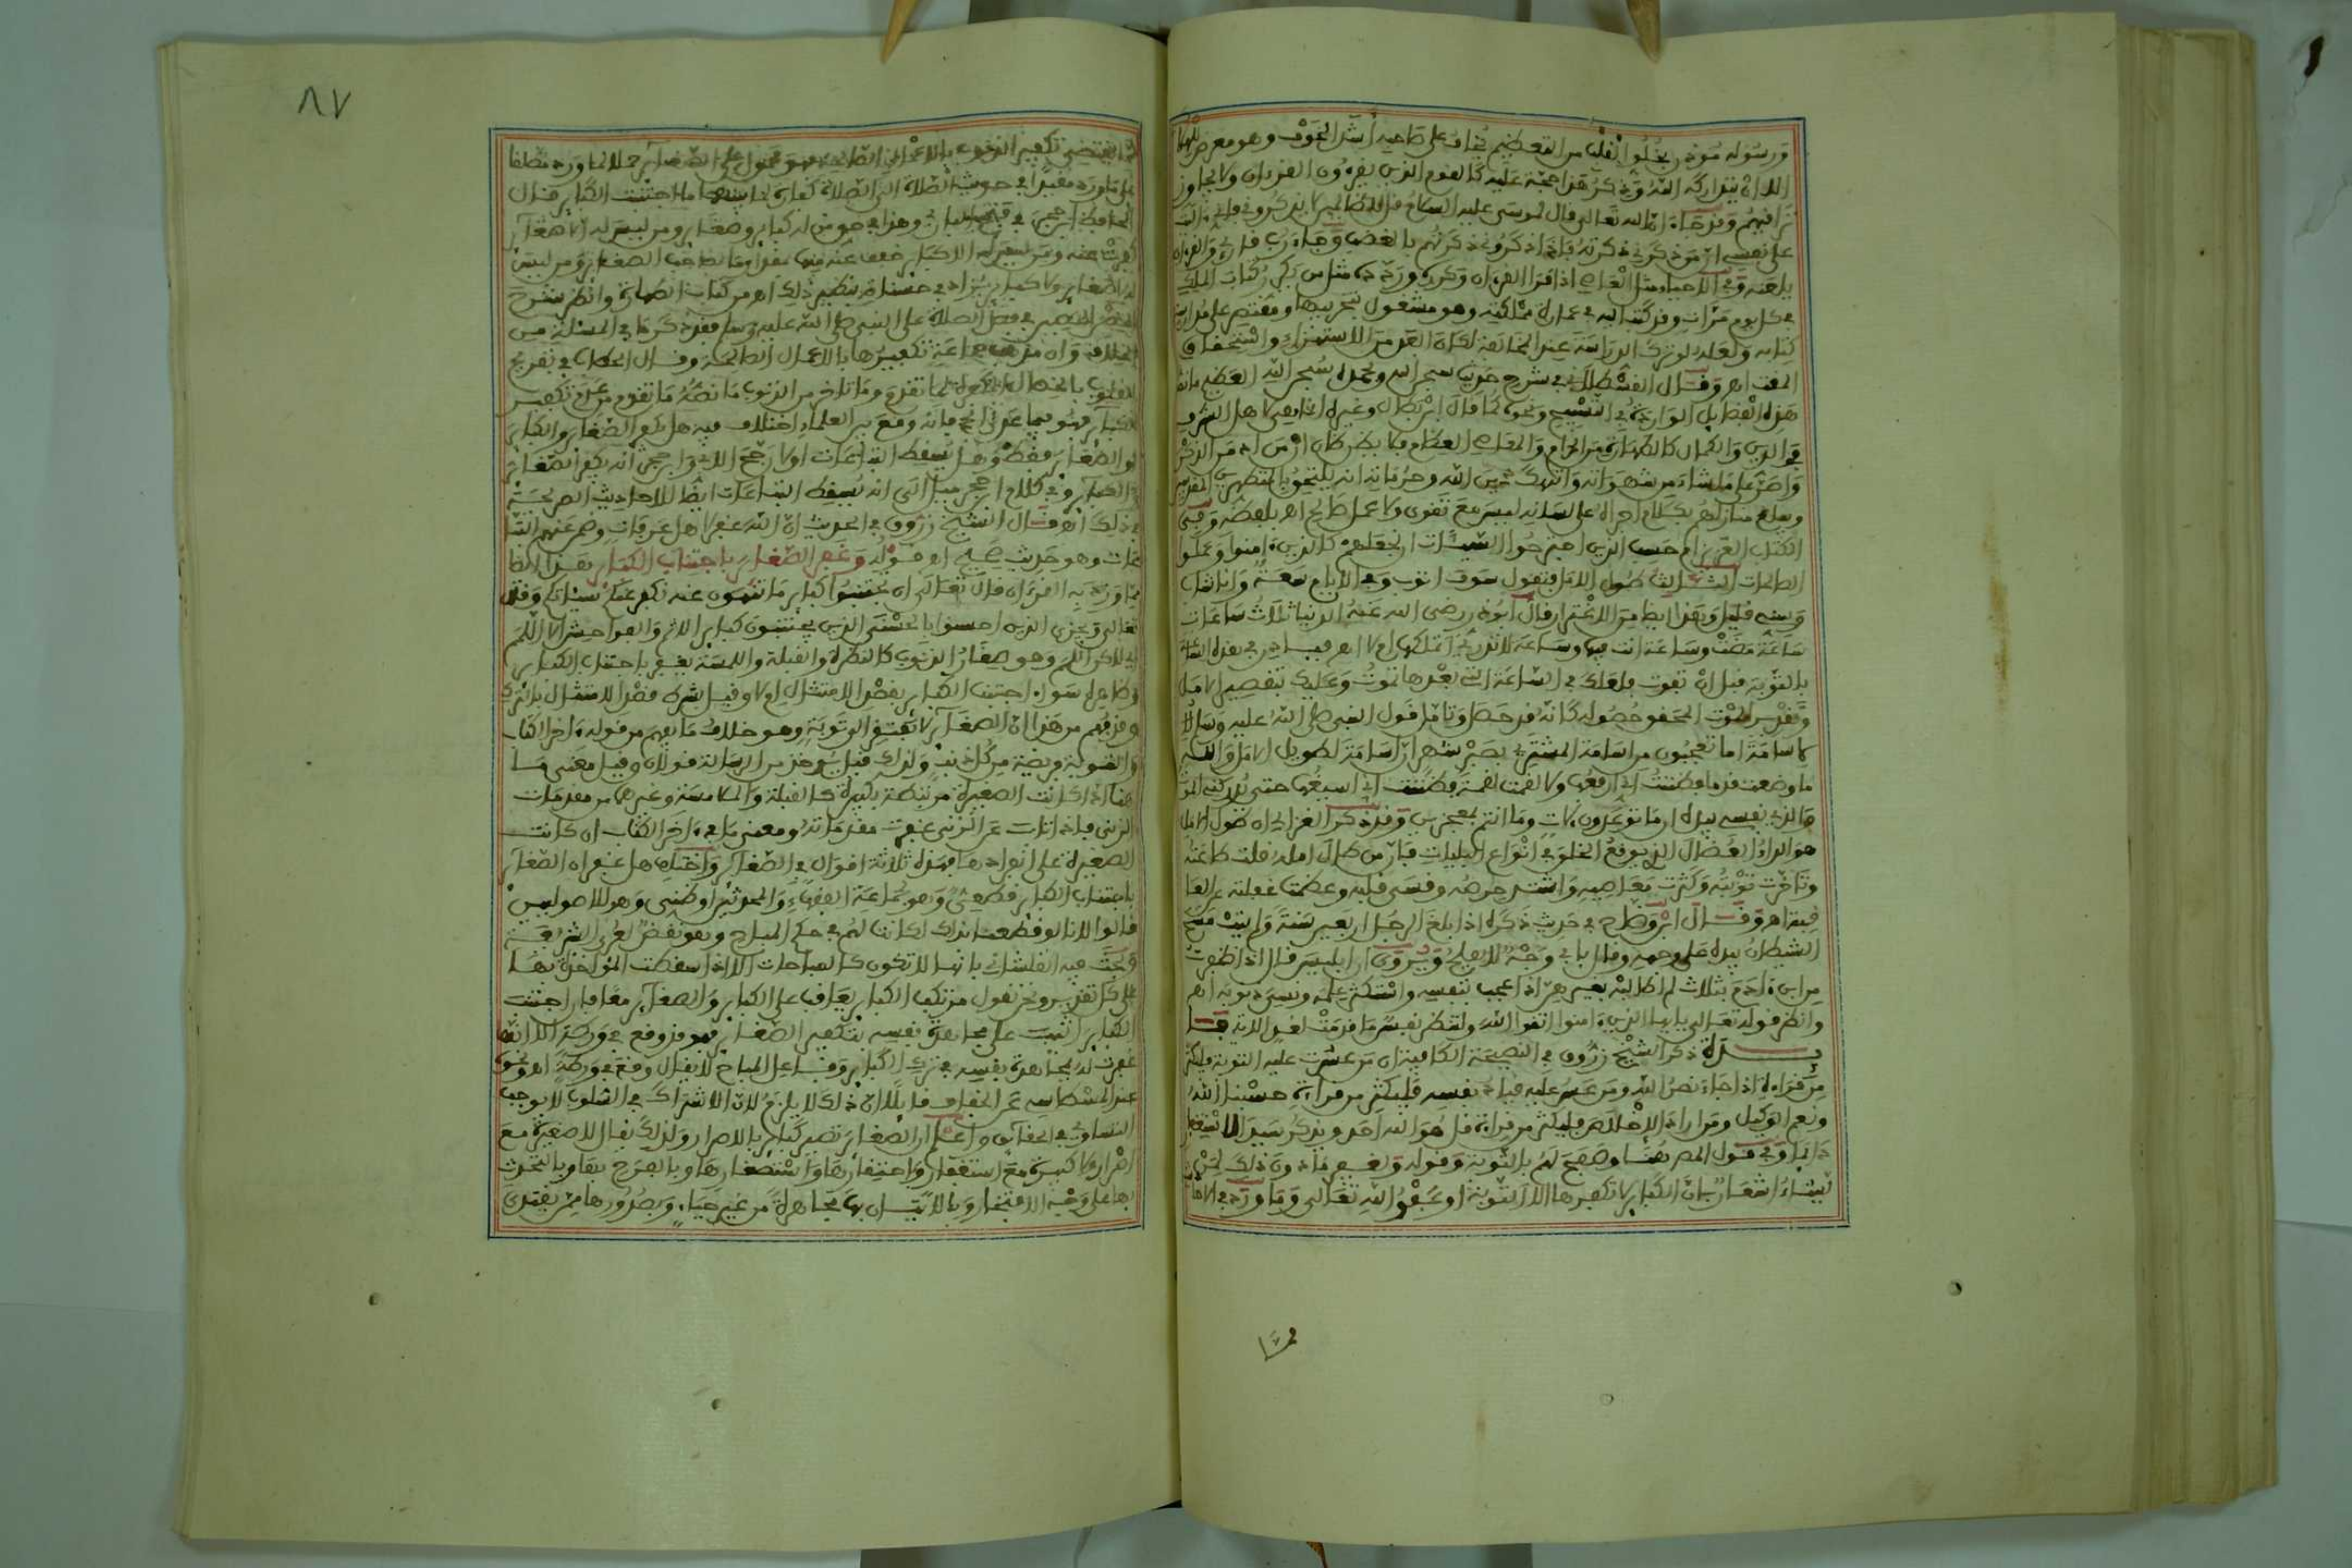 ورسوله مؤذن بخلو القلب من التعظيم يخاف على صاحبه أشد الخوف وهو معرض
الا ان يتداركه الله وذكر هذا حجة عليه كالقوم الذين يقرءون القرءان ولا يجاوز
تراقيهم وقد جاء ان الله تعالى قال لموسى عليه السلام قل للظالمين لا يذكروني فإني ءاليت
على نفسي ان من ذكرني ذكرته فإذا ذكروني ذكرتهم بالغضب وجاء رب قارئ والقرءان
يلعنه وفي الاحياء مثل العاصي اذا قرأ القرءان وكرره مثل من يكرر كتاب الملك
في كل يوم مرات وقد كتب اليه في عمارة مملكته وهو مشغول بتخريبها ومقتصر على دراسة
كتابه ولعله لو ترك الدراسة عند المخالفة لكان ابعد من الاستهزاء واستحقاق
المقت اهـ وقال القسطلاني في شرح حديث سبحان الله وبحمده سبحان الله العظيم ما نصه
هذه الفضايل الواردة في التسبيح ونحوه كما قال ابن بطال وغيره انما هي لاهل الشرف
في الدين والكمال كالطهارة من الحرام والمعاصي العظام فلا يظن ظان ان من ادمن الذكر
واصر على ما شاء من شهواته وانتهك دين الله وحرماته انه يلتحق بالمطهرين المقدسين
ويبلغ منازلهم بكلام اجراه على لسانه ليس معه تقوى ولا عمل صالح اهـ بلفظه وفي
الكتاب العزيز ام حسب الذين اجترحوا السيئات ان نجعلهم كالذين ءامنوا وعملوا
الصالحات الثالث طول الامل فتقول سوف اتوب وفي الايام سعة وانا شاب
وسني قليل وهذا ايضا من الاغترار قال ابو ذر رضي الله عنه الدنيا ثلاث ساعات
ساعة مضت وساعة انت فيها وساعة لا تدري اتملكها ام لا اهـ فبادر في هذه الساعة
بالتوبة قبل ان تفوت فلعلك في الساعة التي بعدها تموت وعليك بتقصير الامل
وتقدير الموت المحقق حصوله كانه قد حضر وتامل قول النبي صلى الله عليه وسلم
لاسامة اما تعجبون من اسامة المشتري بصبر شهر ان اسامة لطويل الامل والله
ما وضعت قدما فظننت اني ارفعها ولا لقمت لقمة فظننت اني اسيغها حتى يدركني الموت
والذي نفسي بيده ان ما توعدون لات وما انتم بمعجزين وقد ذكر الغزالي ان طول الامل
هو الداء العضال الذي يوقع الخلق في انواع البليات فان من طال امله قلت طاعته
وتاخرت توبته وكثرت معاصيه واشتد حرصه وقسى قلبه وعظمت غفلته عن العا
قبة اهـ وقال ابن وضاح في حديث ذكره اذا بلغ الرجل اربعين سنة ولم يتب مسح
الشيطان بيده على وجهه وقال بابي وجه لا يفلح ويروى ان ابليس قال اذا ظفرت
من ابن ءادم بثلاث لم اطالبه بغيرهن اذا اعجب بنفسه واستكثر علمه ونسي ذنوبه اهـ
وانظر قوله تعالى يا ايها الذين ءامنوا اتقوا الله ولتنظر نفس ما قدمت لغد الاية فا
يدة ذكر الشيخ زروق في النصيحة الكافية ان من عسرت عليه التوبة فليكثر
من قراءة اذا جاء نصر الله ومن عسر عليه قياد نفسه فليكثر من قراءة حسبنا الله
ونعم الوكيل ومن اراد الاخلاص فليكثر من قراءة قل هو الله احد ويذكر سيد الاستغفار
دائما وفي قول المصنف هنا وصفح لهم بالتوبة وقوله ويغفر ما دون ذلك لمن
يشاء اشعار بان الكباير لا تكفرها الا التوبة او عفو الله تعالى وما ورد في الاحاديث
مما يقتضي تكفير الذنوب بالاعمال الصالحة فهو محمول على الصغاير حملا لما ورد مطلقا
على ما ورد مقيدا في حديث الصلاة الى الصلاة كفارة لما بينهما ما اجتنبت الكباير قال
الحافظ ابن حجر في فتح الباري وهذا في حق من له كباير وصغاير ومن ليس له الا صغاير
كفرت عنه ومن ليس له الا كباير خفف عنه منها مقدار ما لصاحب الصغاير ومن ليس
له صغاير ولا كباير يزاد في حسناته بنظير ذلك اهـ من كتاب الطهارة وانظر شرح
الحصن الحصين في فضل الصلاة على النبي صلى الله عليه وسلم فقد ذكر ما في المسئلة من
الخلاف وان مذهب جماعة تكفيرها بالاعمال الصالحة وقال الحطاب في تفريح
القلوب بالخصال المكفرة لما تقدم وما تاخر من الذنوب ما نصه ما تقدم من عدم تكفير
الكباير فهو فيما عدا الحج فانه وقع بين العلماء اختلاف فيه هل يكفر الصغاير والكباير
او الصغاير فقط وهل يسقط التبعات اولا رجح الابي وابن حجر انه يكفر الصغاير
والكباير وفي كلام ابن حجر ميل الى انه يسقط التبعات ايضا للاحاديث الصريحة
في ذلك اهـ وقال الشيخ زروق في الحديث ان الله غفر لاهل عرفات وضمن عنهم التبا
عات وهو حديث صحيح اهـ قوله وغفر الصغاير باجتناب الكباير هذا ايضا
مما ورد به القرءان قال تعالى ان تجتنبوا كباير ما تنهون عنه نكفر عنكم سيئاتكم وقال
تعالى ويجزي الذين احسنوا بالحسنى الذين يجتنبون كباير الاثم والفواحش الا اللمم
اي لاكن اللمم وهو صغار الذنوب كالنظرة والقبلة واللمسة يغفر باجتناب الكباير
وظاهره سواء اجتنب الكباير بقصد الامتثال ام لا وقيل بشرط قصد الامتثال بالترك
وقد فهم من هذا ان الصغاير لا تفتقر الى توبة وهو خلاف ما يفهم من قوله ءاخر الكتاب
والتوبة فريضة من كل ذنب ولذلك قيل يؤخذ من الرسالة قولان وقيل معنى ما
هنا اذا كانت الصغيرة مرتبطة بكبيرة كالقبلة والملامسة وغيرهما من مقدمات
الزنى فاذا تاب عن الزنى غفرت مقدماته ومعنى ما في ءاخر الكتاب ان كانت
الصغيرة على انفرادها فهذه ثلاثة اقوال في الصغاير واختلف هل غفران الصغاير
باجتناب الكباير قطعي وهو لجماعة الفقهاء والمحدثين او ظني وهو للاصوليين
قالوا لانا لو قطعنا بذلك لكانت لهم في حكم المباح وهو نقض لعرى الشريعة
وبحث فيه القلشاني بانها لا تكون كالمباحات الا اذا سقطت المؤاخذة بها
على كل تقدير ونحن نقول مرتكب الكباير يعاقب على الكباير والصغاير معا فان اجتنب
الكباير اثيب على مجاهدة نفسه بتكفير الصغاير فهو قد وقع في ورطة الا انها
غفرت له بمجاهدة نفسه في ترك الكباير وفاعل المباح لا يقال وقع في ورطة اهـ ونحوه
عند المشطاسي عن الخفاف قايلا ان ذلك لا يلزم لان الاشتراك في السلوب لا يوجب
التساوي في الحقائق واعلم ان الصغاير تصير كباير بالاصرار ولذلك يقال لا صغيرة مع
اصرار ولا كبيرة مع استغفار وباحتقارها واستصغارها وبالفرح بها وبالتحدث
بها على وجه الافتخار وبالاتيان بها مجاهرة من غير حياء وبصدورها ممن يقتدى
٨٧